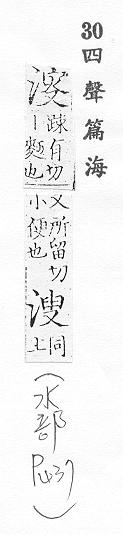 30四聲篇海
疎有切
丨麵也
又所留切
小便也
溲
同
上
(水部
)